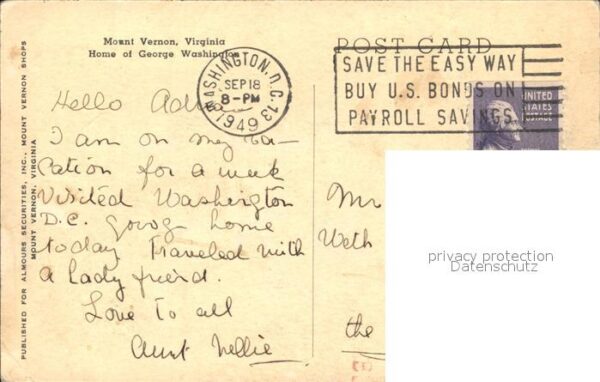 Mount Vernon, Virginia
Home of George Washington
POST CARD
WASHINGTON, D.C. 13
SEP 18
8-PM
1949
SAVE THE EASY WAY
BUY U.S. BONDS ON
PAYROLL SAVINGS
UNITED
STATES
POSTAGE
PUBLISHED FOR ALMOURS SECURITIES, INC., MOUNT VERNON SHOPS
MOUNT VERNON, VIRGINIA
Hello
I am on my va-
cation for a week
Visited Washington
D.C. going home
today Traveled with
a lady friend.
Love to all
Aunt Nellie
Mr
Weth
the
privacy protection
Datenschutz